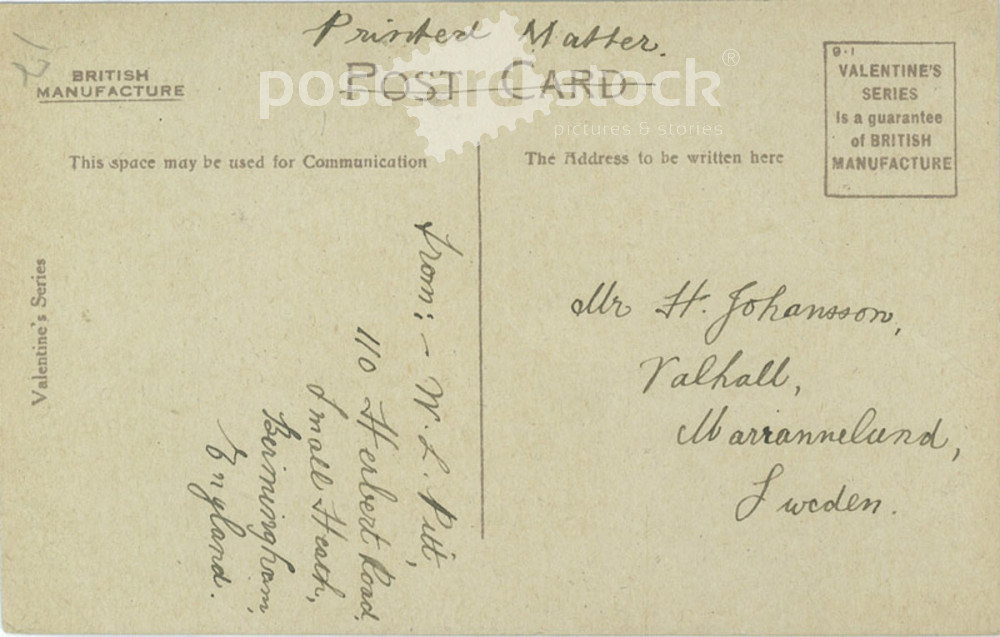 Printed Matter.
POST CARD
BRITISH
MANUFACTURE
postcard stock®
pictures & stories
9·1
VALENTINE'S
SERIES
Is a guarantee
of BRITISH
MANUFACTURE
This space may be used for Communication
The Address to be written here
Valentine's Series
From:- W. L. Pitt,
110 Herbert Road,
Small Heath,
Birmingham,
England.
Mr H. Johansson,
Valhall,
Mariannelund,
Sweden.